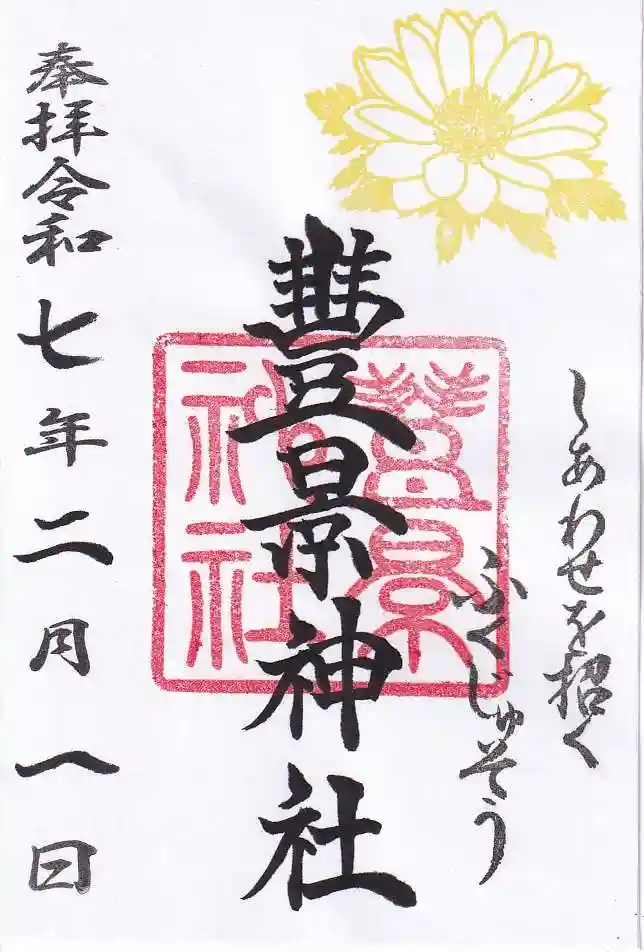 しあわせを招く
ふくじゅそう
豐景神社
豐景
神社
奉拝令和七年二月一日